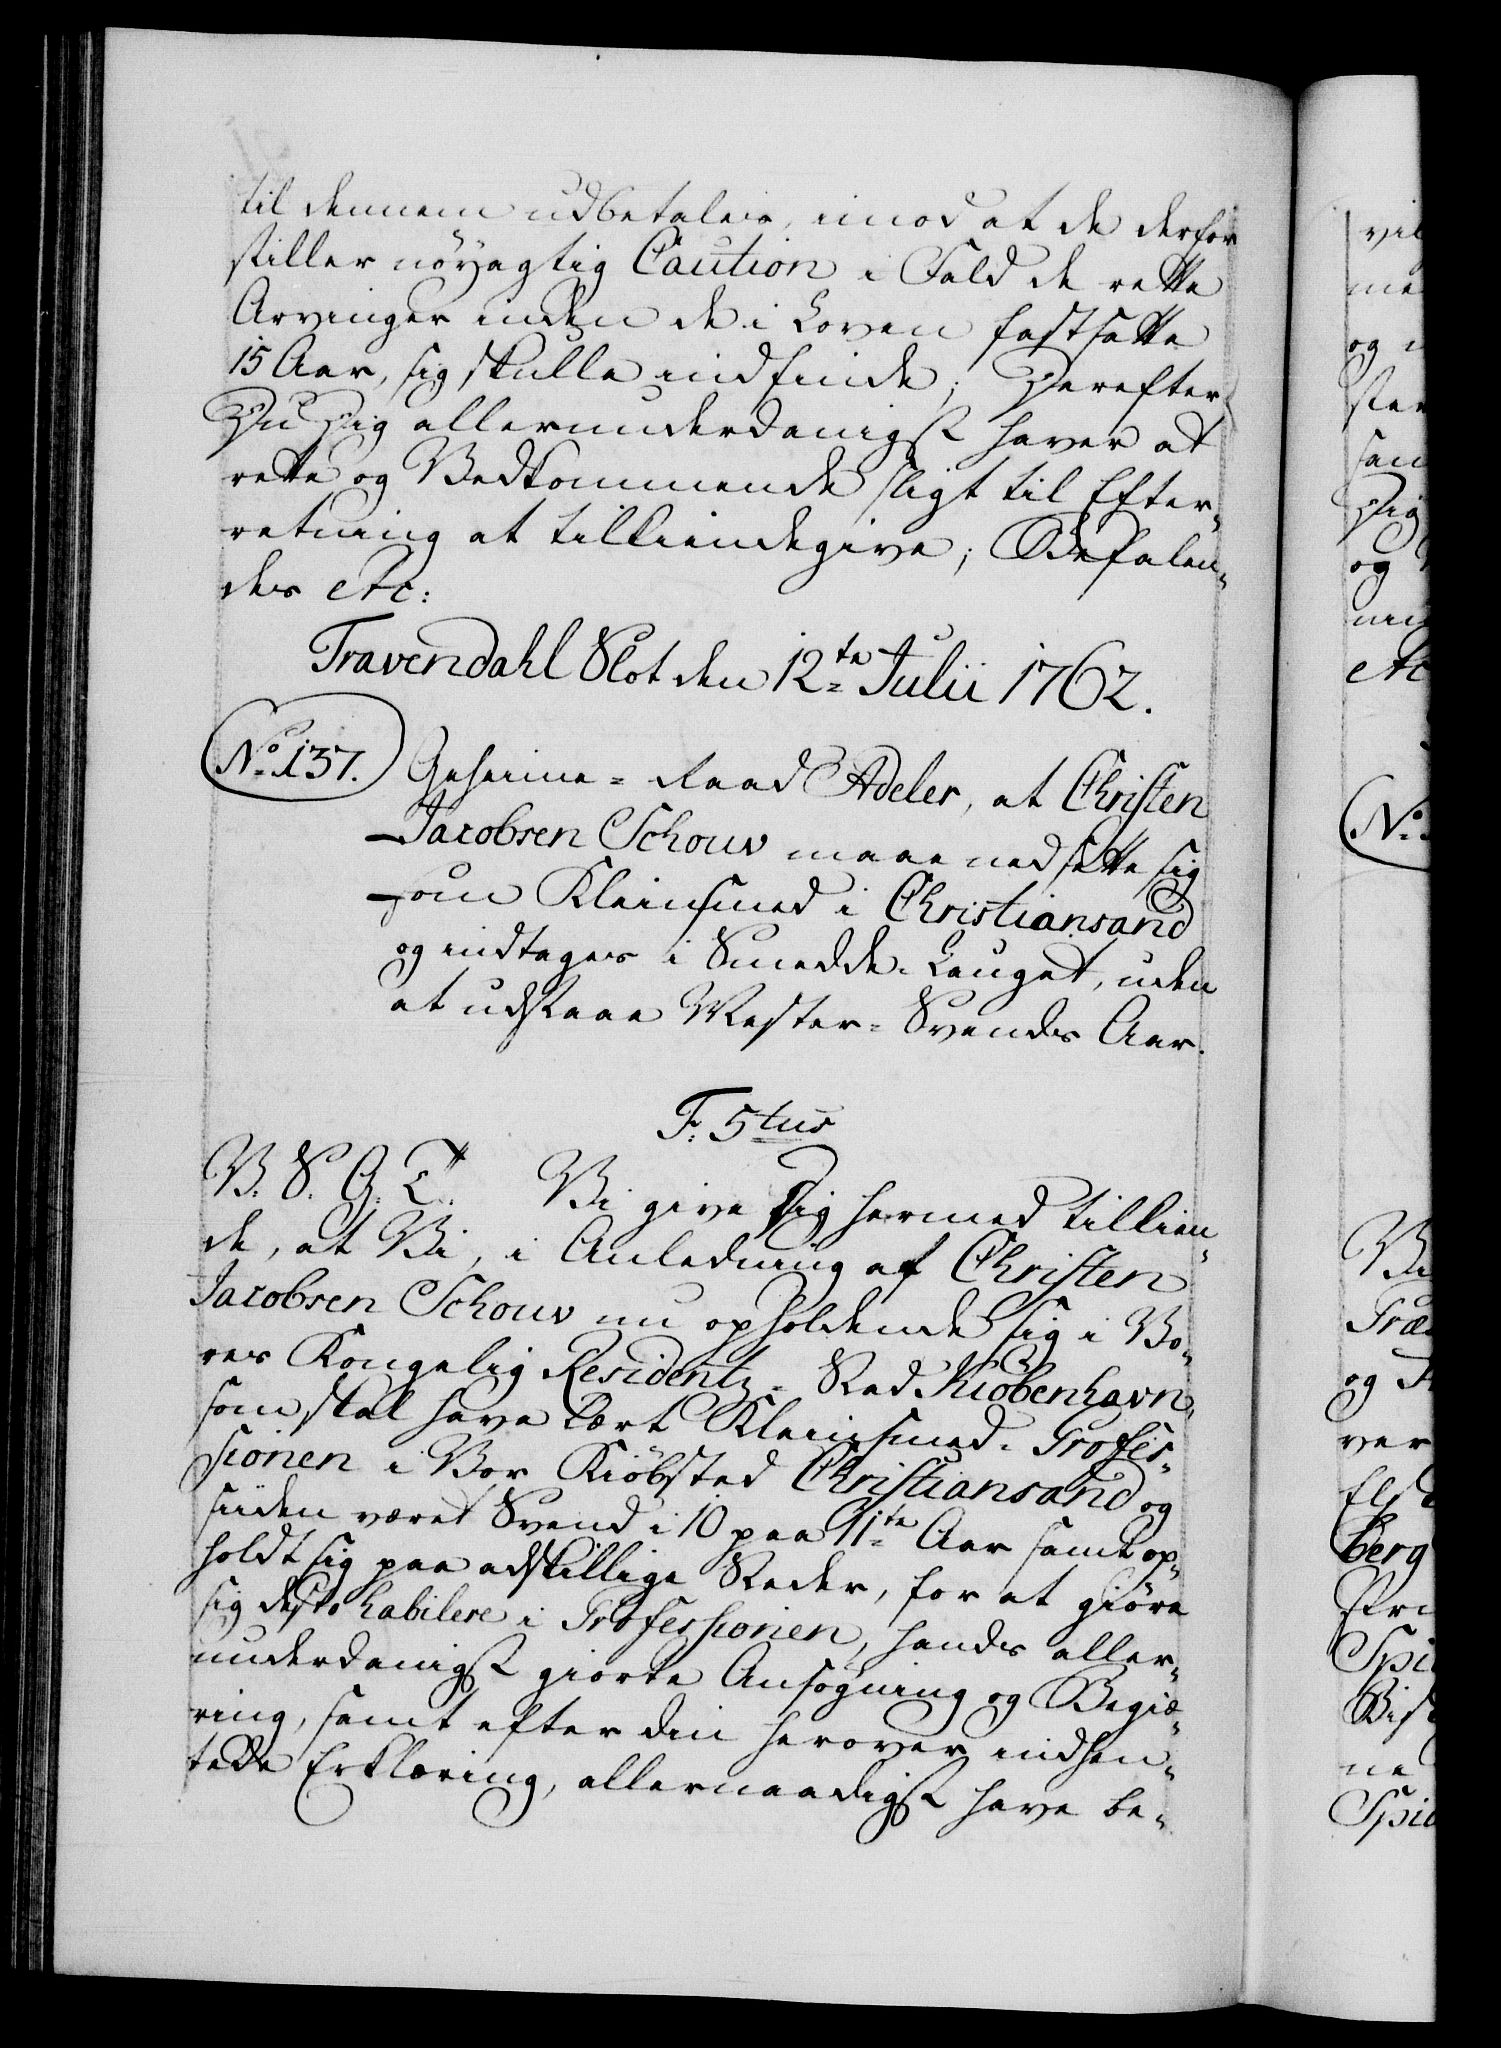 til dennem udbetales, imod at de derfor
stiller nöyagtig Caution i Fald de rette
Arvinger inden de i Loven fastsatte
15 Aar, sig skulle indfinde; Derefter
Du Dig allerunderdanigst haver at
rette og Vedkommende sligt til Efter-
retning at tilkiendegive; Befalen-
des etc:
Travendahl Slot den 12te Julii 1762.
No 137. Geheime-Raad Adeler, at Christen
Jacobsen Schouv maae nedsette sig
som Kleinsmed i Christiansand
og indtages i Smedde-Lauget, uden
at udstaae Mester-Svends Aar.
F: 5tus
V. S. G. T. Vi give Dig hermed tilkien-
de, at Vi, i Anledning af Christen
Jacobsen Schouv nu opholdende sig i Vo-
res Kongelig Residentz-Stad Kiöbenhavn,
som skal have lært Kleinsmed-Profes-
sionen i Vor Kiöbsted Christiansand og
siiden været Svend i 10 paa 11te Aar samt op-
holdt sig paa adskillige Steder, for at giöre
sig desto habilere i Professionen, hands aller-
underdanigst giorte Ansøgning og Begiæ-
ring, samt efter din herover indhen-
tede Erklæring, allernaadigst have be-
vil
me
og
ste
san
Dig
og
nin
etc
No
Vi
Træ
og
ver
Els
berg
Spi
Bis
ne
Spi